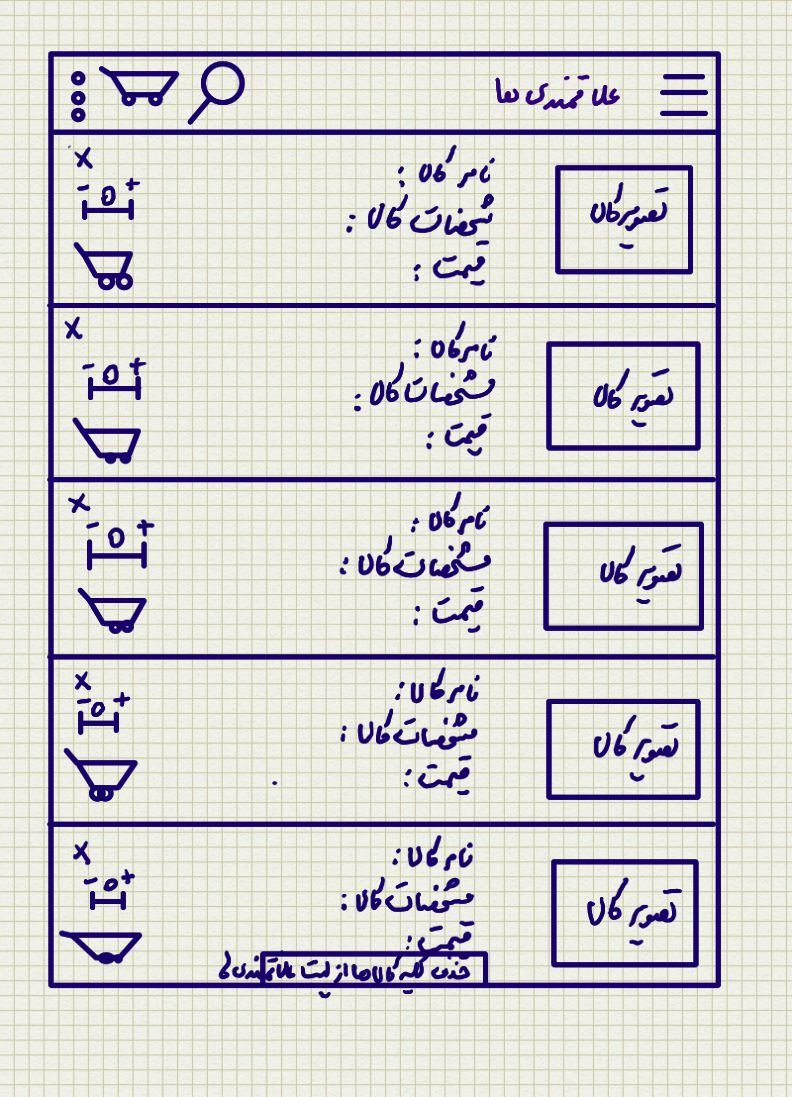 علاقمندی ها
نام کالا :
مشخصات کالا :
قیمت :
تصویر کالا
x
- 0 +
نام کالا :
مشخصات کالا :
قیمت :
تصویر کالا
x
- 0 +
نام کالا :
مشخصات کالا :
قیمت :
تصویر کالا
x
- 0 +
نام کالا :
مشخصات کالا :
قیمت :
تصویر کالا
x
- 0 +
نام کالا :
مشخصات کالا :
قیمت :
تصویر کالا
x
- 0 +
حذف کلیه کالاها از لیست علاقمندی ها